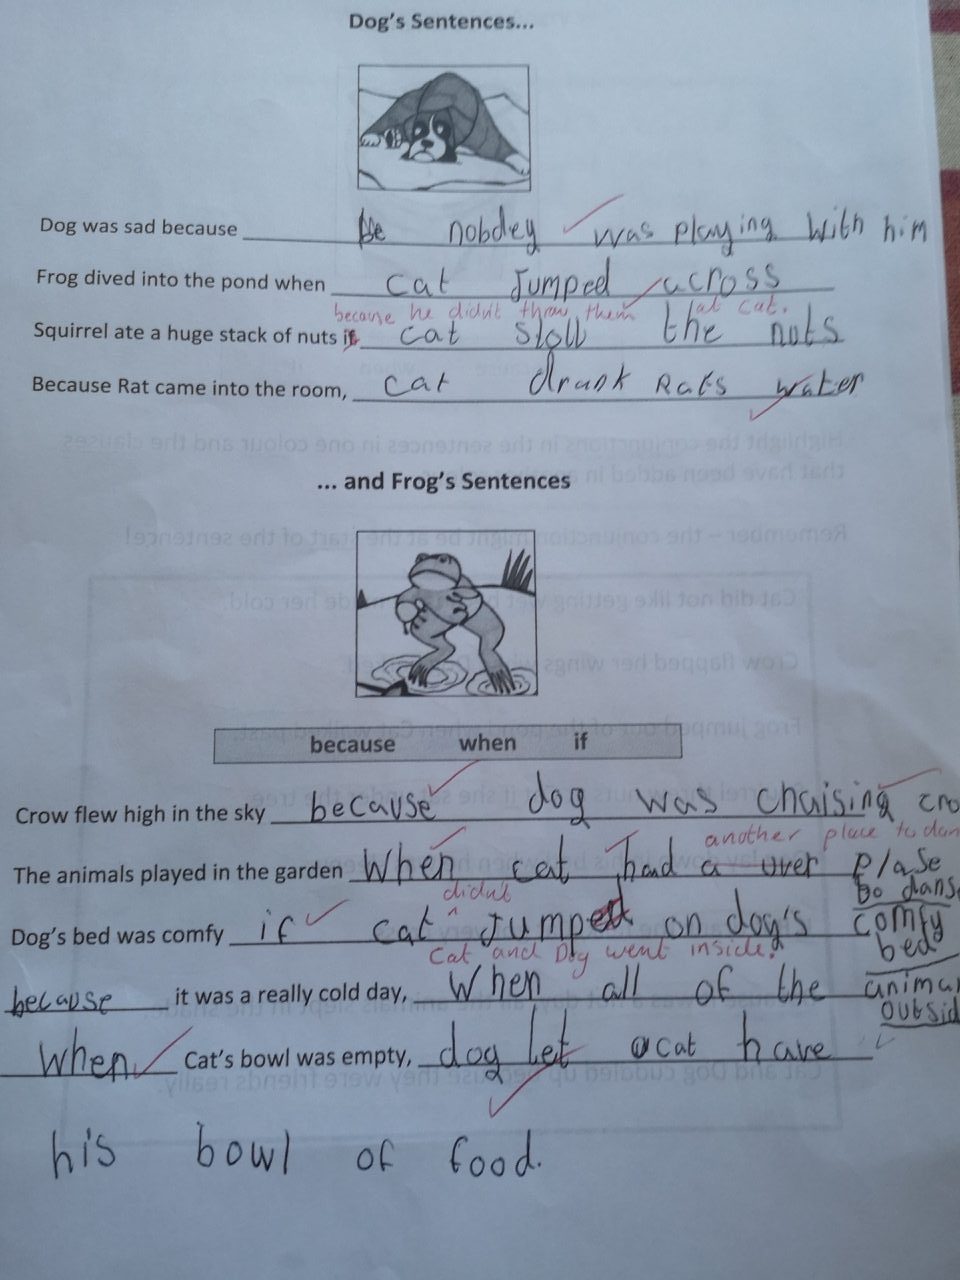 Dog's Sentences...
Dog was sad because nobdey was playing with him
Frog dived into the pond when cat Jumped across
because he didn't throw them at cat.
Squirrel ate a huge stack of nuts if cat stoll the nuts
Because Rat came into the room, cat drunk Rats water
... and Frog's Sentences
because when if
Crow flew high in the sky because dog was chaising cro
another place to dan
The animals played in the garden When cat had a over plase
to dans
didn't
Dog's bed was comfy if cat Jumped on dog's comfy
bed
Cat and Dog went inside.
because it was a really cold day, When all of the animal
outsid
When Cat's bowl was empty, dog let cat have
his bowl of food.